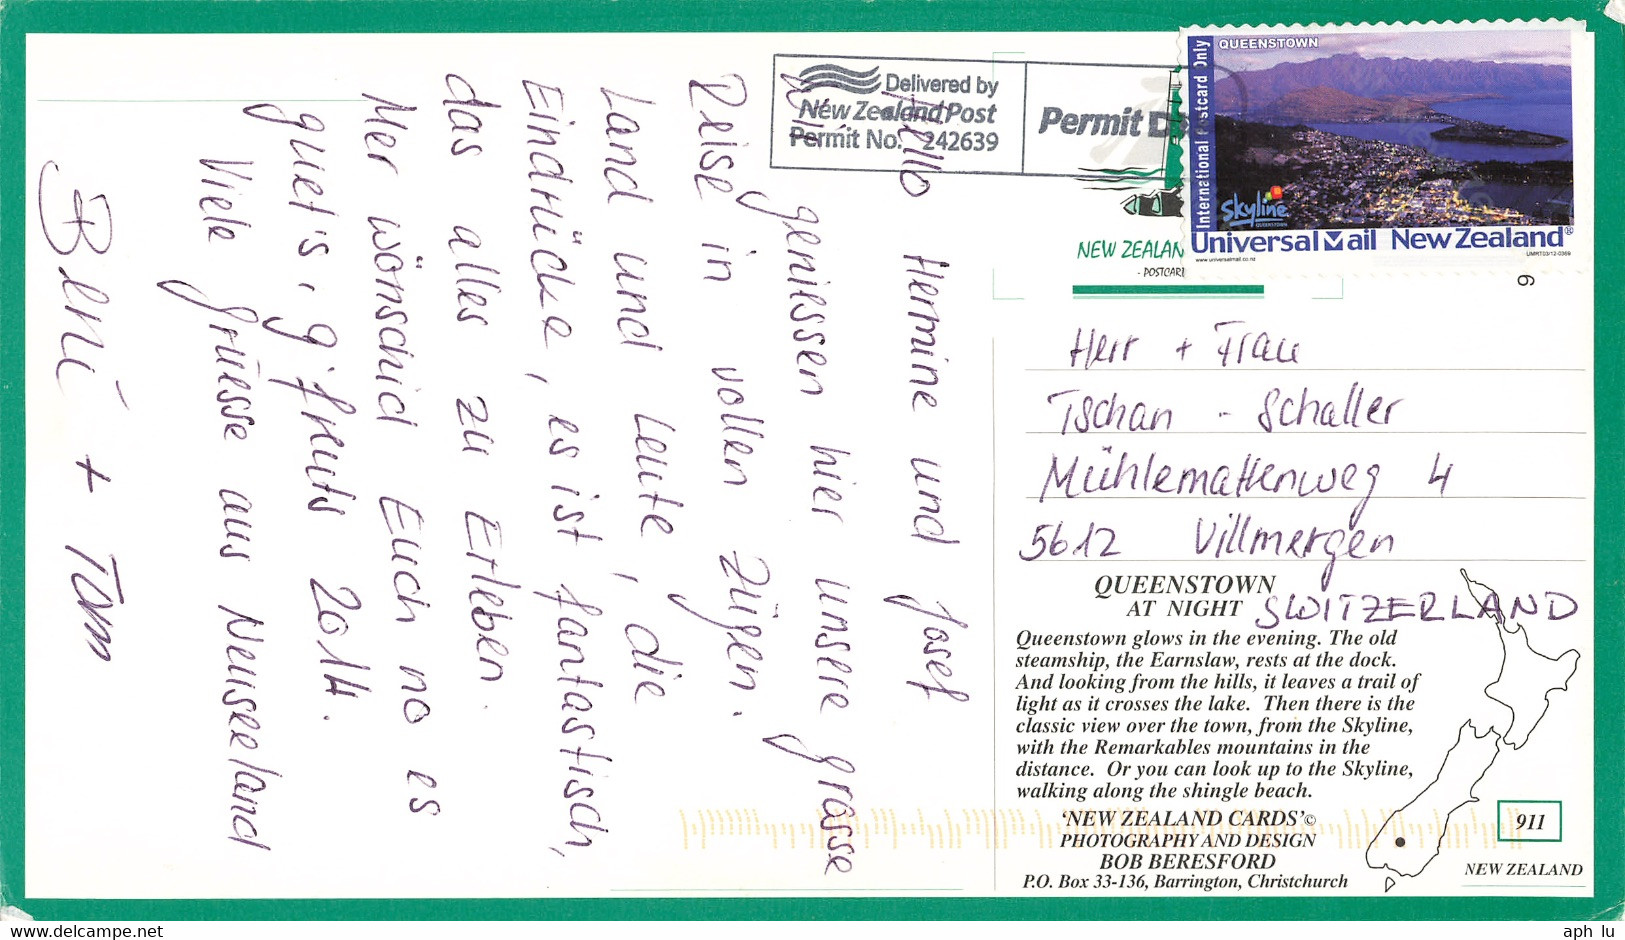 Hello Hermine und Josef
Wir geniessen hier unsere grosse
Reise in vollen Zügen.
Land und Leute, die
Eindrücke, es ist fantastisch,
das alles zu Erleben.
Mer wönschid Euch no es
guet's, g'freuts 2014.
Viele Grüsse aus Neuseeland
Beni + Tom
Delivered by
New Zealand Post
Permit No. 242639
Permit
QUEENSTOWN
International Postcard Only
Skyline
QUEENSTOWN
Universal Mail New Zealand®
www.universalmail.co.nz
UMRT03/12-0369
NEW ZEALAN
- POSTCAR
9
Herr + Frau
Tschan - Schaller
Mühlemattenweg 4
5612 Villmergen
SWITZERLAND
QUEENSTOWN
AT NIGHT
Queenstown glows in the evening. The old
steamship, the Earnslaw, rests at the dock.
And looking from the hills, it leaves a trail of
light as it crosses the lake. Then there is the
classic view over the town, from the Skyline,
with the Remarkables mountains in the
distance. Or you can look up to the Skyline,
walking along the shingle beach.
'NEW ZEALAND CARDS'©
PHOTOGRAPHY AND DESIGN
BOB BERESFORD
P.O. Box 33-136, Barrington, Christchurch
911
NEW ZEALAND
Mehr auf www.ansichtskartenversand.com
aph_lu